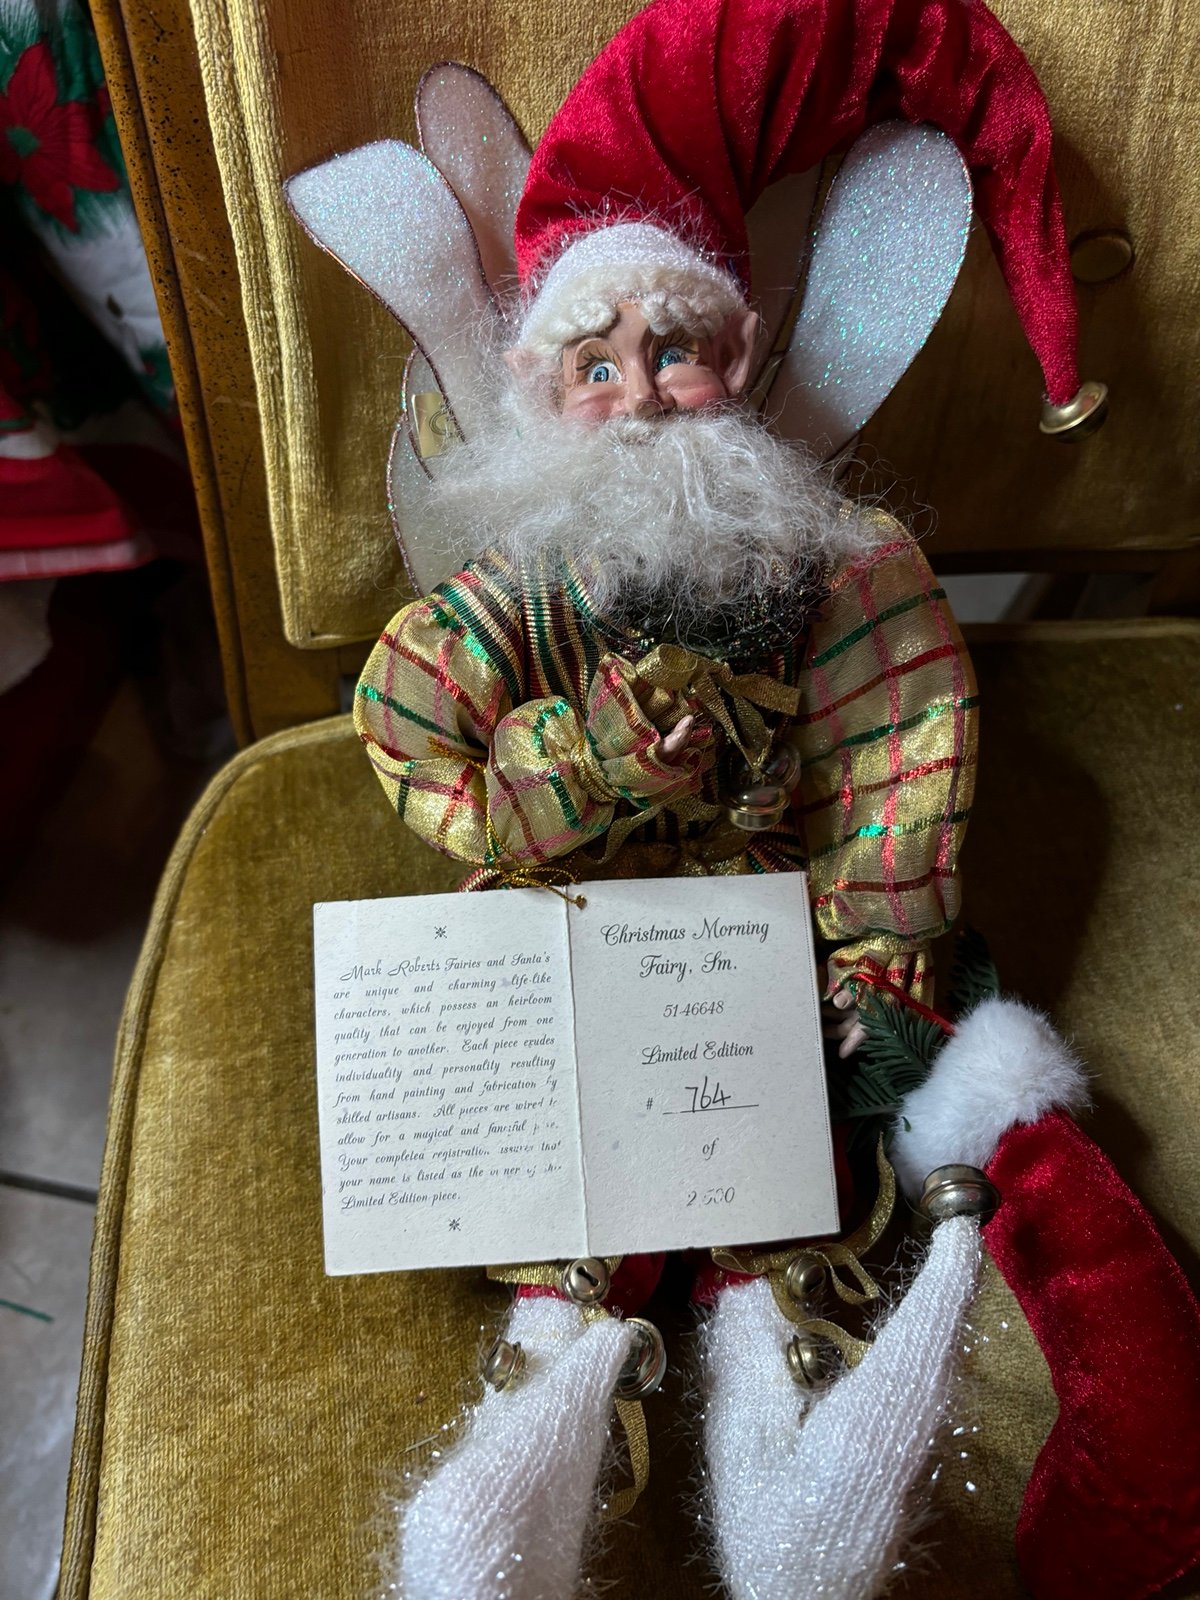 Mark Roberts Fairies and Santa's
are unique and charming life-like
characters, which possess an heirloom
quality that can be enjoyed from one
generation to another. Each piece exudes
individuality and personality resulting
from hand painting and fabrication by
skilled artisans. All pieces are wired to
allow for a magical and fanciful
Your completed registration that
your name is listed as the owner of this
Limited Edition piece.
Christmas Morning
Fairy, Sm.
51-46648
Limited Edition
# 764
of
2,500